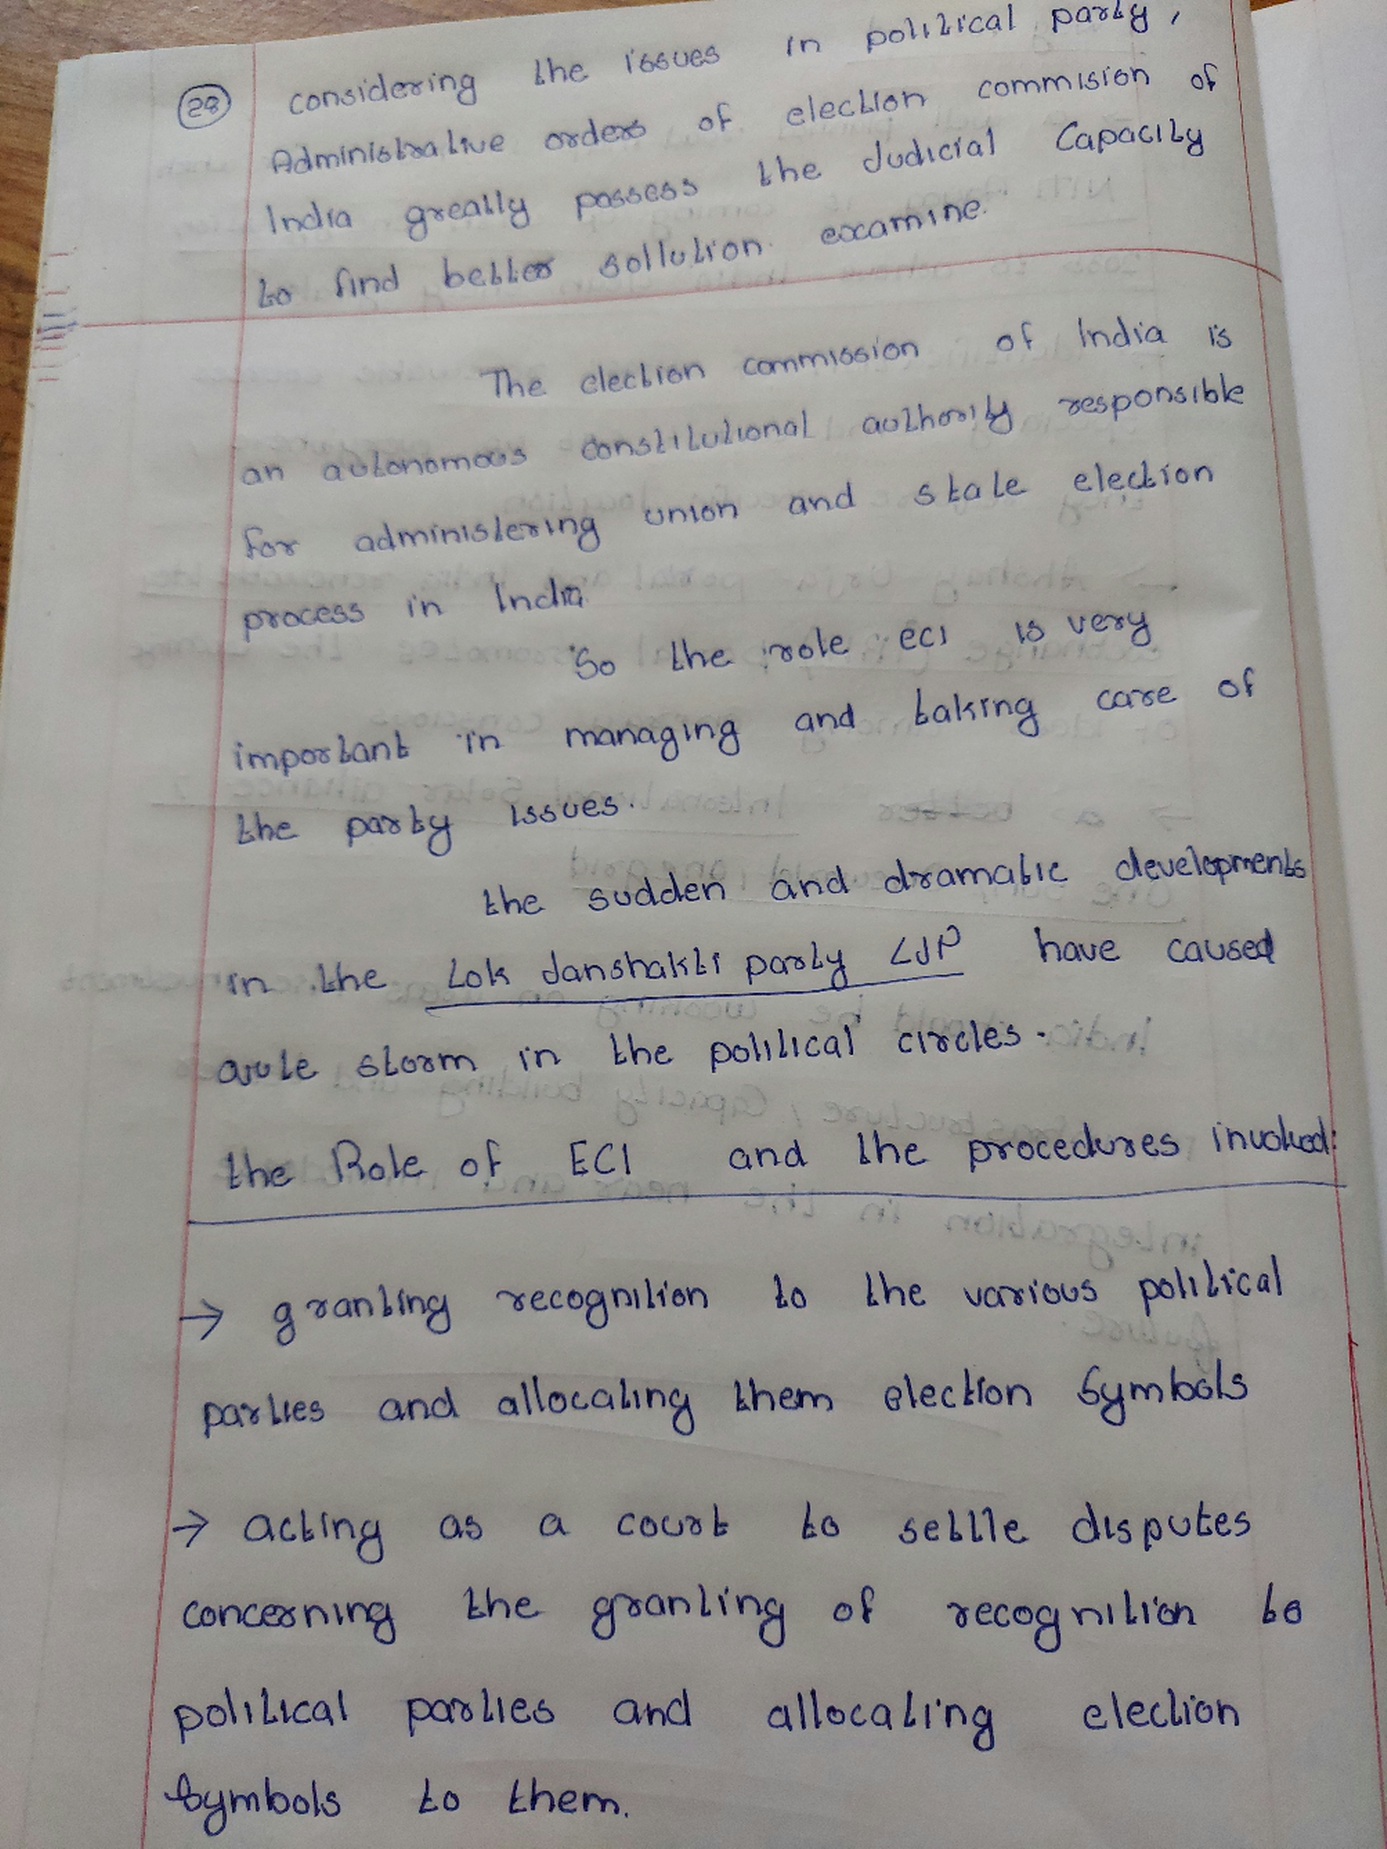 28 considering the issues in political party,
Administrative orders of election commision of
India greatly possess the Judicial Capacity
to find better sollution. examine.
The election commission of India is
an autonomous constitutional authority responsible
for administering union and state election
process in India.
So the role eci is very
important in managing and taking care of
the party issues.
the sudden and dramatic developments
in the Lok Janshakti party LJP have caused
storm in the political circles.
the Role of ECI and the procedures involved:
→ granting recognition to the various political
parties and allocating them election Symbols
→ acting as a court to settle disputes
concerning the granting of recognition to
political parties and allocating election
Symbols to them.